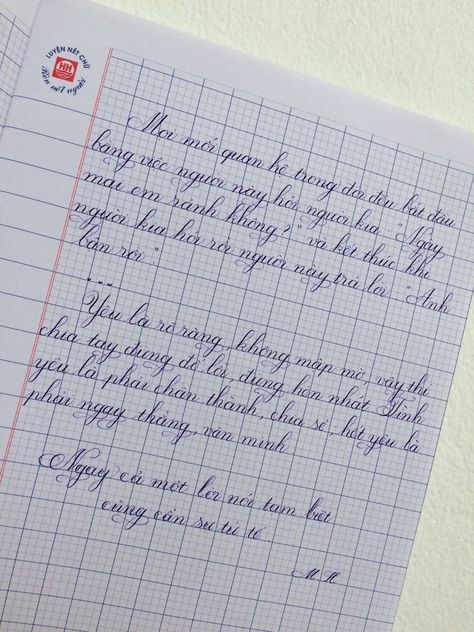 LUYỆN NÉT CHỮ
HH
Rèn nết người
Mọi mối quan hệ trong đời đều bắt đầu
bằng việc người này hỏi người kia "Ngày
mai em rảnh không?" và kết thúc khi
người kia hỏi rồi người này trả lời: "Anh
bận rồi"
...
Yêu là rõ ràng, không mập mờ, vậy thì
chia tay đừng đổ lỗi, đừng hèn nhát. Tình
yêu là phải chân thành, chia sẻ, hết yêu là
phải ngay thẳng, văn minh
Ngay cả một lời nói tạm biệt
cũng cần sự tử tế
M H